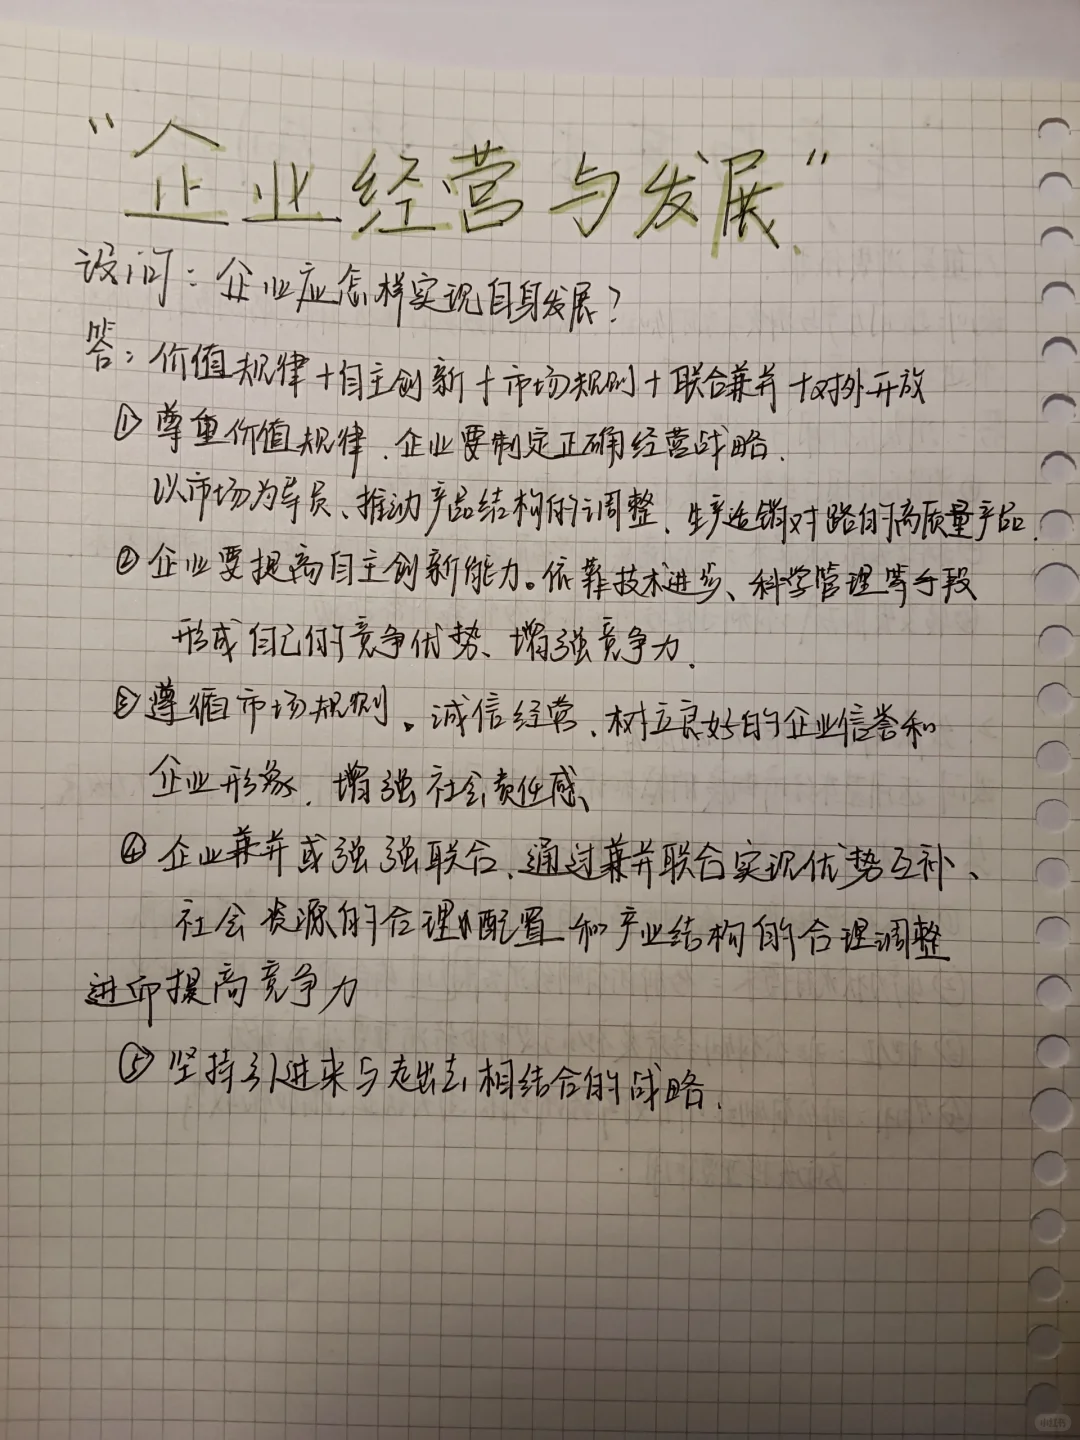 “企业经营与发展”
设问：企业应怎样实现自身发展？
答：价值规律+自主创新+市场规则+联合兼并+对外开放
①尊重价值规律、企业要制定正确经营战略、
以市场为导员、推动产品结构的调整、生产适销对路的高质量产品、
②企业要提高自主创新能力。依靠技术进步、科学管理等手段
形成自己的竞争优势、增强竞争力、
③遵循市场规则。诚信经营、树立良好的企业信誉和
企业形象、增强社会责任感、
④企业兼并或强强联合、通过兼并联合实现优势互补、
社会资源的合理配置和产业结构的合理调整
进而提高竞争力
⑤坚持引进来与走出去相结合的战略、